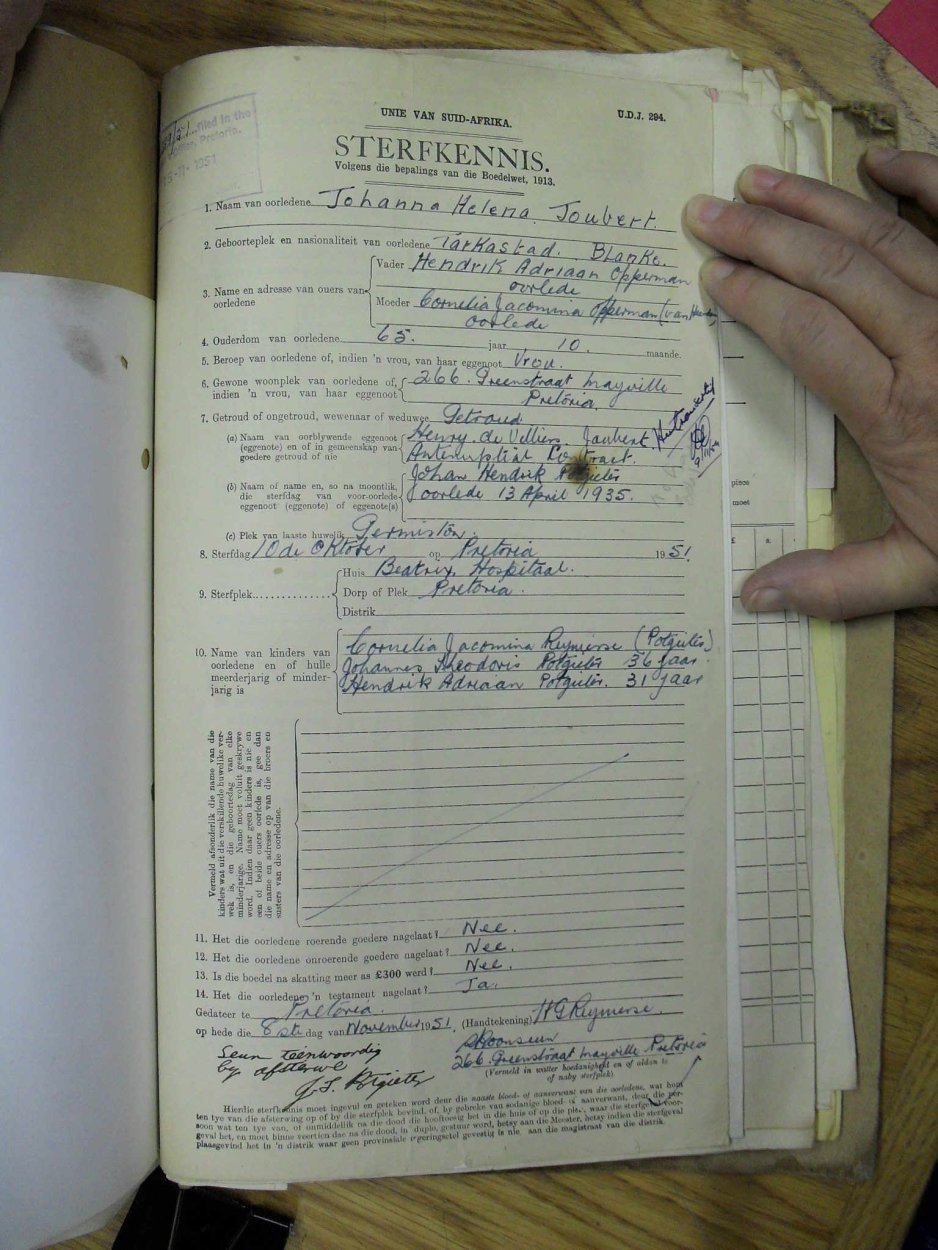 filed in the
Pretoria.
1951
UNIE VAN SUID-AFRIKA.
U.D.J. 294.
STERFKENNIS.
Volgens die bepalings van die Boedelwet, 1913.
1. Naam van oorledene Johanna Helena Joubert.
2. Geboorteplek en nasionaliteit van oorledene Tarkastad. Blanke.
3. Name en adresse van ouers van oorledene
Vader Hendrik Adriaan Opperman
oorlede
Moeder Cornelia Jacomina Opperman (van
oorlede
4. Ouderdom van oorledene 65. jaar 10. maande.
5. Beroep van oorledene of, indien 'n vrou, van haar eggenoot Vrou.
6. Gewone woonplek van oorledene of, indien 'n vrou, van haar eggenoot
266. Greenstraat Mayville
Pretoria.
7. Getroud of ongetroud, wewenaar of weduwee Getroud
(a) Naam van oorblywende eggenoot (eggenote) en of in gemeenskap van goedere getroud of nie
Henry de Villiers Joubert.
Antenuptial Contract.
(b) Naam of name en, so na moontlik, die sterfdag van voor-oorlede eggenoot (eggenote) of eggenote(s)
Johan Hendrik Potgieter
oorlede 13 April 1935.
(c) Plek van laaste huwelik Germiston.
8. Sterfdag 10de Oktober op Pretoria 1951.
9. Sterfplek
Huis Beatrix Hospitaal.
Dorp of Plek Pretoria.
Distrik
10. Name van kinders van oorledene en of hulle meerderjarig of minderjarig is
Cornelia Jacomina Reymerse (Potgieter)
Johannes Theodoris Potgieter 36 jaar.
Hendrik Adriaan Potgieter. 31 jaar
Vermeld afsonderlik die name van die
kinders wat uit die verskillende huwelike ver-
wek is, en die geboortedag van elke
minderjarige. Name moet voluit geskrywe
word. Indien daar geen kinders is nie en
een of beide ouers oorlede is, gee dan
die name en adresse op van die broers en
susters van die oorledene.
11. Het die oorledene roerende goedere nagelaat? Nee.
12. Het die oorledene onroerende goedere nagelaat? Nee.
13. Is die boedel na skatting meer as £300 werd? Nee.
14. Het die oorledene 'n testament nagelaat? Ja.
Gedateer te Pretoria.
op hede die 8ste dag van November 1951. (Handtekening) H G Reymerse.
Skoonseun
266. Greenstraat Mayville Pretoria
(Vermeld in watter hoedanigheid en of aldan te of naby sterfplek).
Seun teenwoordig
by afsterwe
J. T. Potgieter
Hierdie sterfkennis moet ingevul en geteken word deur die naaste bloed- of aanverwant van die oorledene, wat
ten tye van die afsterwing op of by die sterfplek bevind, of, by gebreke van sodanige bloed- of aanverwant, deur die per-
soon wat ten tye van, of onmiddellik na die dood die hooftoesig het in die huis of op die plek, waar die sterfgeval voor-
geval het, en moet binne veertien dae na die dood, in duplo, gestuur word, hetsy aan die Meester, hetsy indien die sterfgeval
plaasgevind het in 'n distrik waar geen provinsiale regeringsetel gevestig is nie, aan die magistraat van die distrik.
moet
£